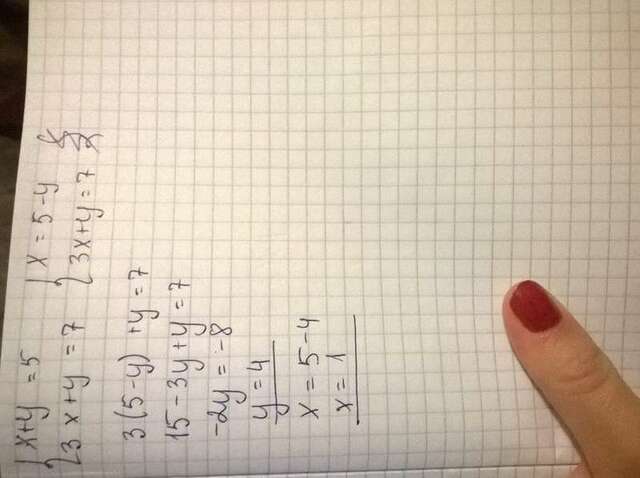 { x+y = 5 { x = 5-y
{ 3x+y = 7 { 3x+y = 7
3(5-y) +y = 7
15-3y+y = 7
-2y = -8
y = 4
x = 5-4
x = 1